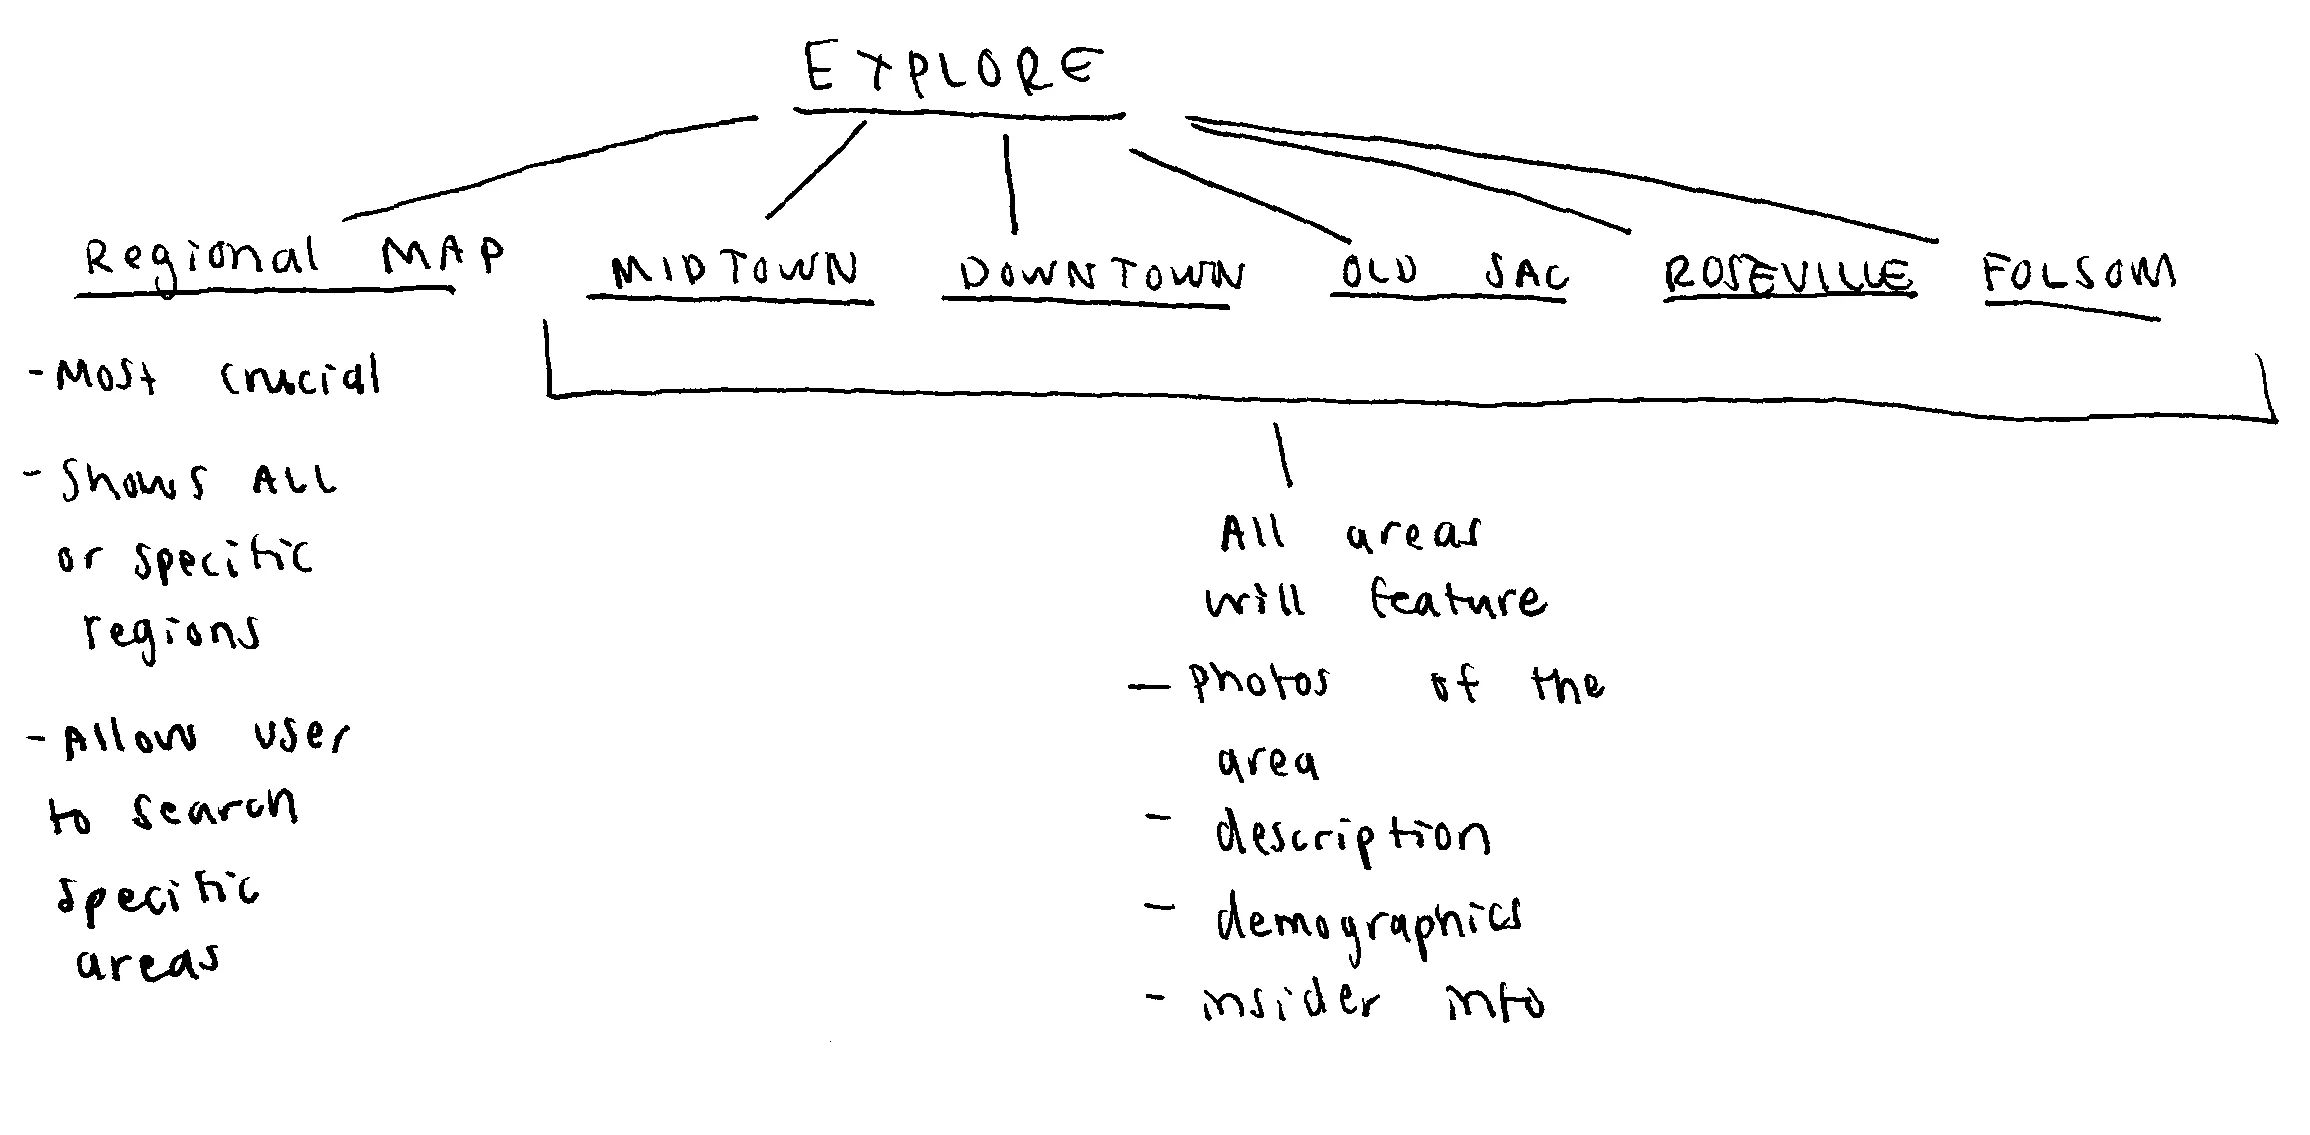 EXPLORE
Regional MAP MIDTOWN DOWNTOWN OLD SAC ROSEVILLE FOLSOM
- Most crucial
- Shows ALL
or specific
regions
- Allow user
to search
specific
areas
All areas
will feature
- Photos of the
area
- description
- demographics
- insider info